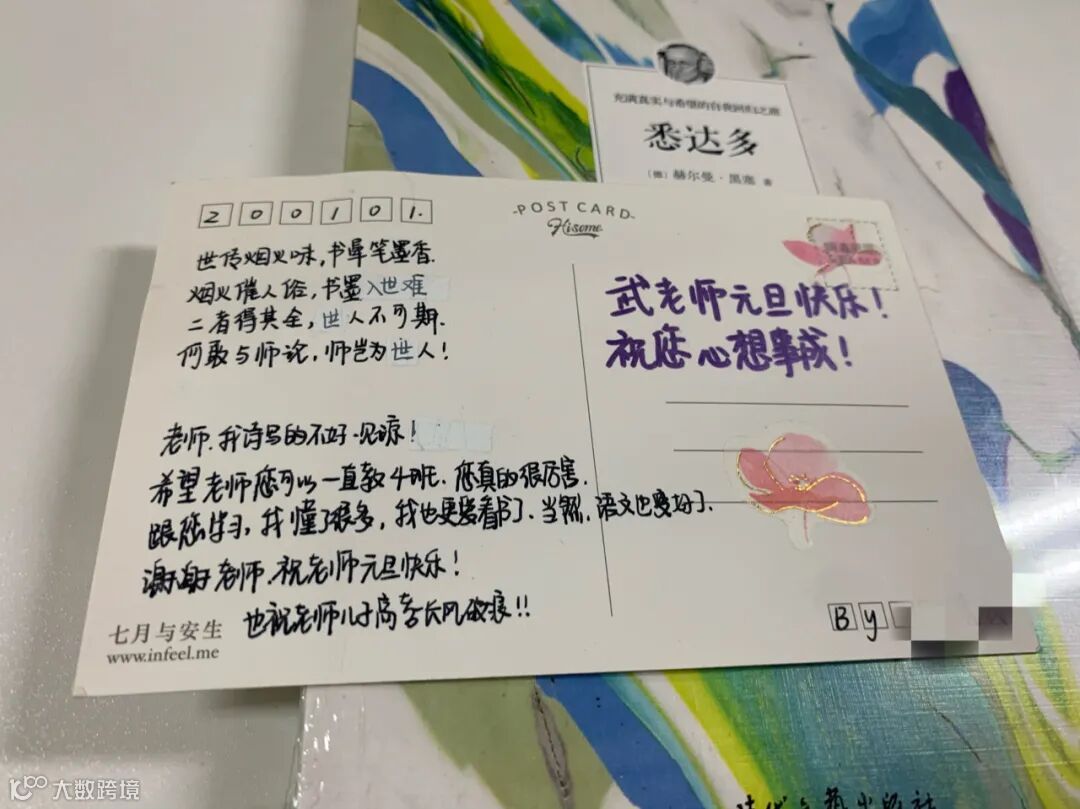 充满真实与希望的自我回归之旅
悉达多
（德）赫尔曼·黑塞 著
200101.
POST CARD
Hisome
世传烟火味，书晕笔墨香.
烟火催人俗，书墨入世难
二者得其全，世人不可期.
何敢与师论，师岂为世人！
老师.我诗写的不好.见谅！
希望老师您可以一直教4班.您真的很厉害.
跟您学习，我懂了很多，我也更爱看书了.当然.语文也更好了.
谢谢老师.祝老师元旦快乐！
也祝老师儿子高考长风破浪！！
武老师元旦快乐！
祝您心想事成！
By
七月与安生
www.infeel.me
文艺出版社
大数跨境